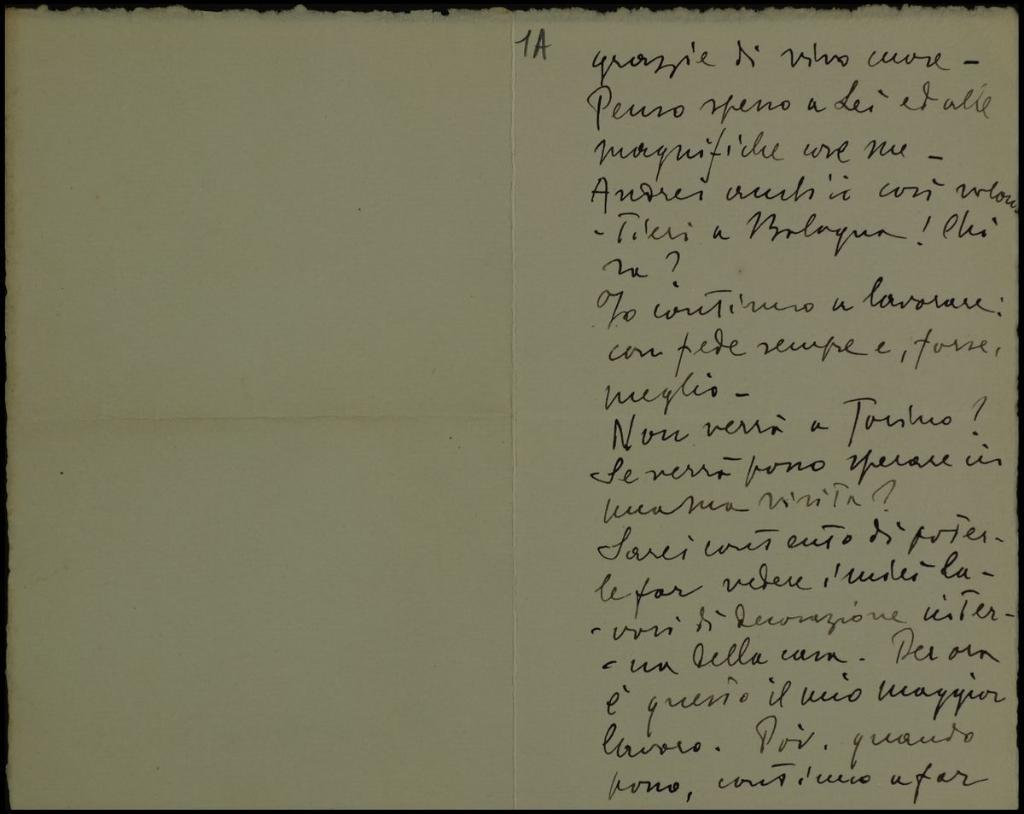 1A
grazie di vivo cuore –
Penso spesso a Lei ed alle
magnifiche cose sue –
Andrei anch'io così volon
- tieri a Bologna! Chi
sa?
Io continuo a lavorare:
con fede sempre e, forse,
meglio –
Non verrà a Torino?
Se verrà posso sperare in
una sua visita?
Sarei contento di poter-
le far vedere i miei la-
- vori di decorazione inter-
- na della casa. Per ora
è questo il mio maggior
lavoro. Poi, quando
posso, continuo a far